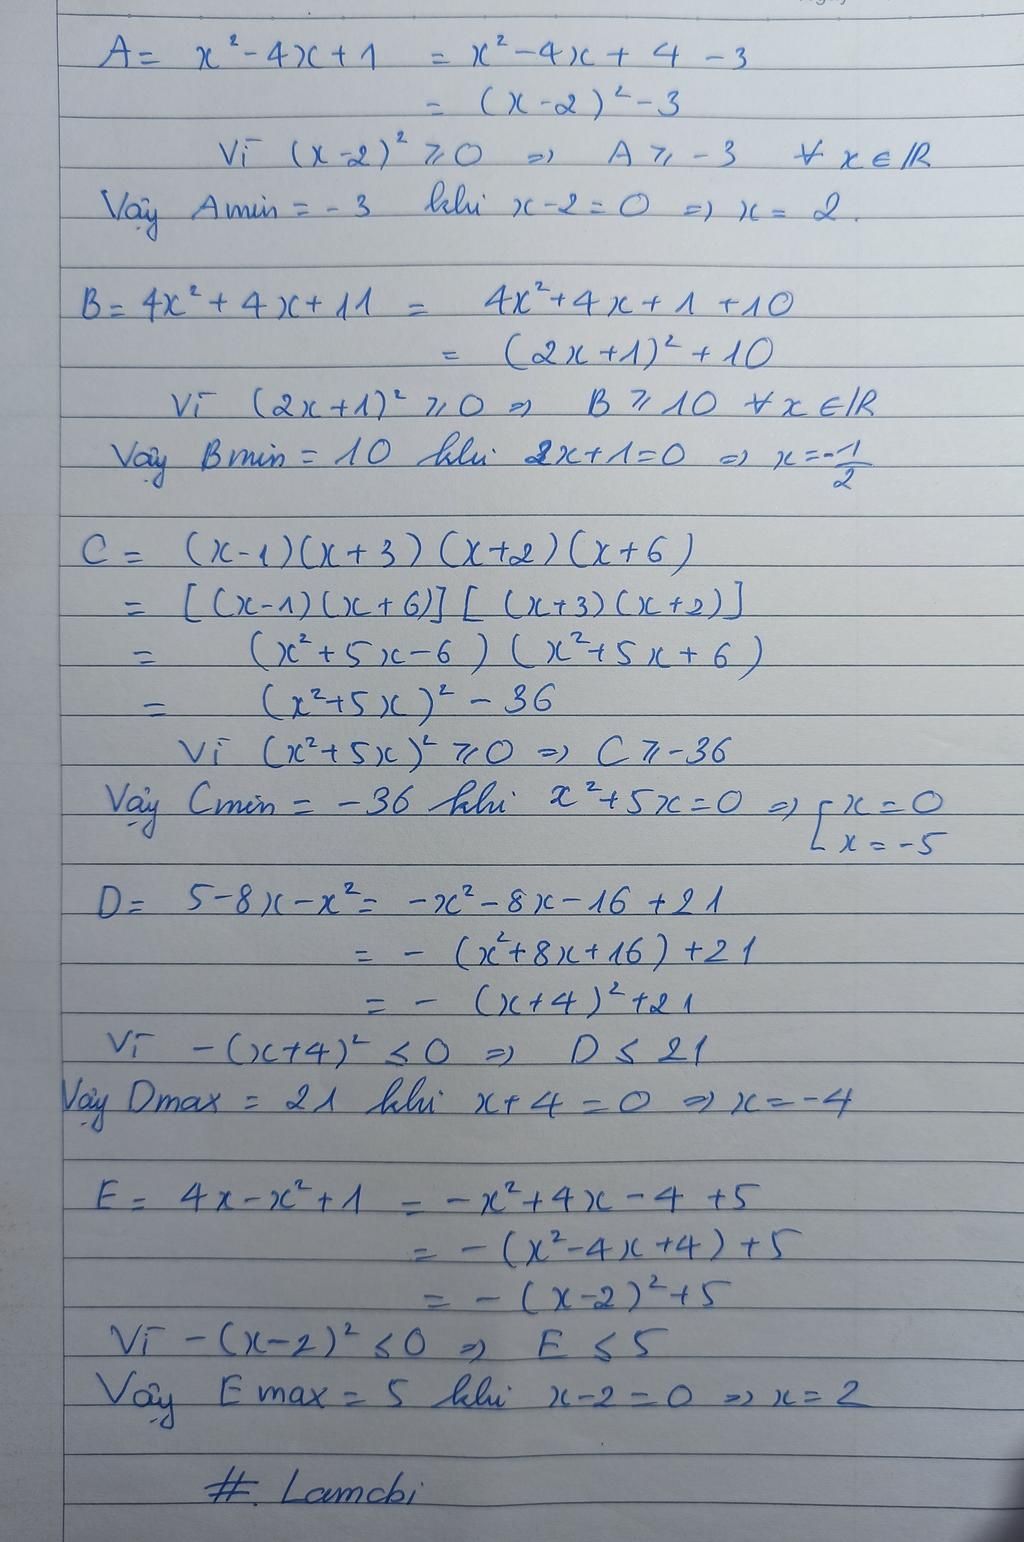 A = x² - 4x + 1 = x² - 4x + 4 - 3
= (x - 2)² - 3
Vì (x - 2)² ⩾ 0 ⇒ A ⩾ - 3 ∀ x ∈ ℝ
Vậy Amin = - 3 khi x - 2 = 0 ⇒ x = 2.
B = 4x² + 4x + 11 = 4x² + 4x + 1 + 10
= (2x + 1)² + 10
Vì (2x + 1)² ⩾ 0 ⇒ B ⩾ 10 ∀ x ∈ ℝ
Vậy Bmin = 10 khi 2x + 1 = 0 ⇒ x = -1/2
C = (x - 1)(x + 3)(x + 2)(x + 6)
= [(x - 1)(x + 6)][(x + 3)(x + 2)]
= (x² + 5x - 6)(x² + 5x + 6)
= (x² + 5x)² - 36
Vì (x² + 5x)² ⩾ 0 ⇒ C ⩾ -36
Vậy Cmin = -36 khi x² + 5x = 0 ⇒ [ x = 0
x = -5
D = 5 - 8x - x² = -x² - 8x - 16 + 21
= - (x² + 8x + 16) + 21
= - (x + 4)² + 21
Vì - (x + 4)² ⩽ 0 ⇒ D ⩽ 21
Vậy Dmax = 21 khi x + 4 = 0 ⇒ x = -4
E = 4x - x² + 1 = -x² + 4x - 4 + 5
= - (x² - 4x + 4) + 5
= - (x - 2)² + 5
Vì - (x - 2)² ⩽ 0 ⇒ E ⩽ 5
Vậy E max = 5 khi x - 2 = 0 ⇒ x = 2
#. Lamcbi